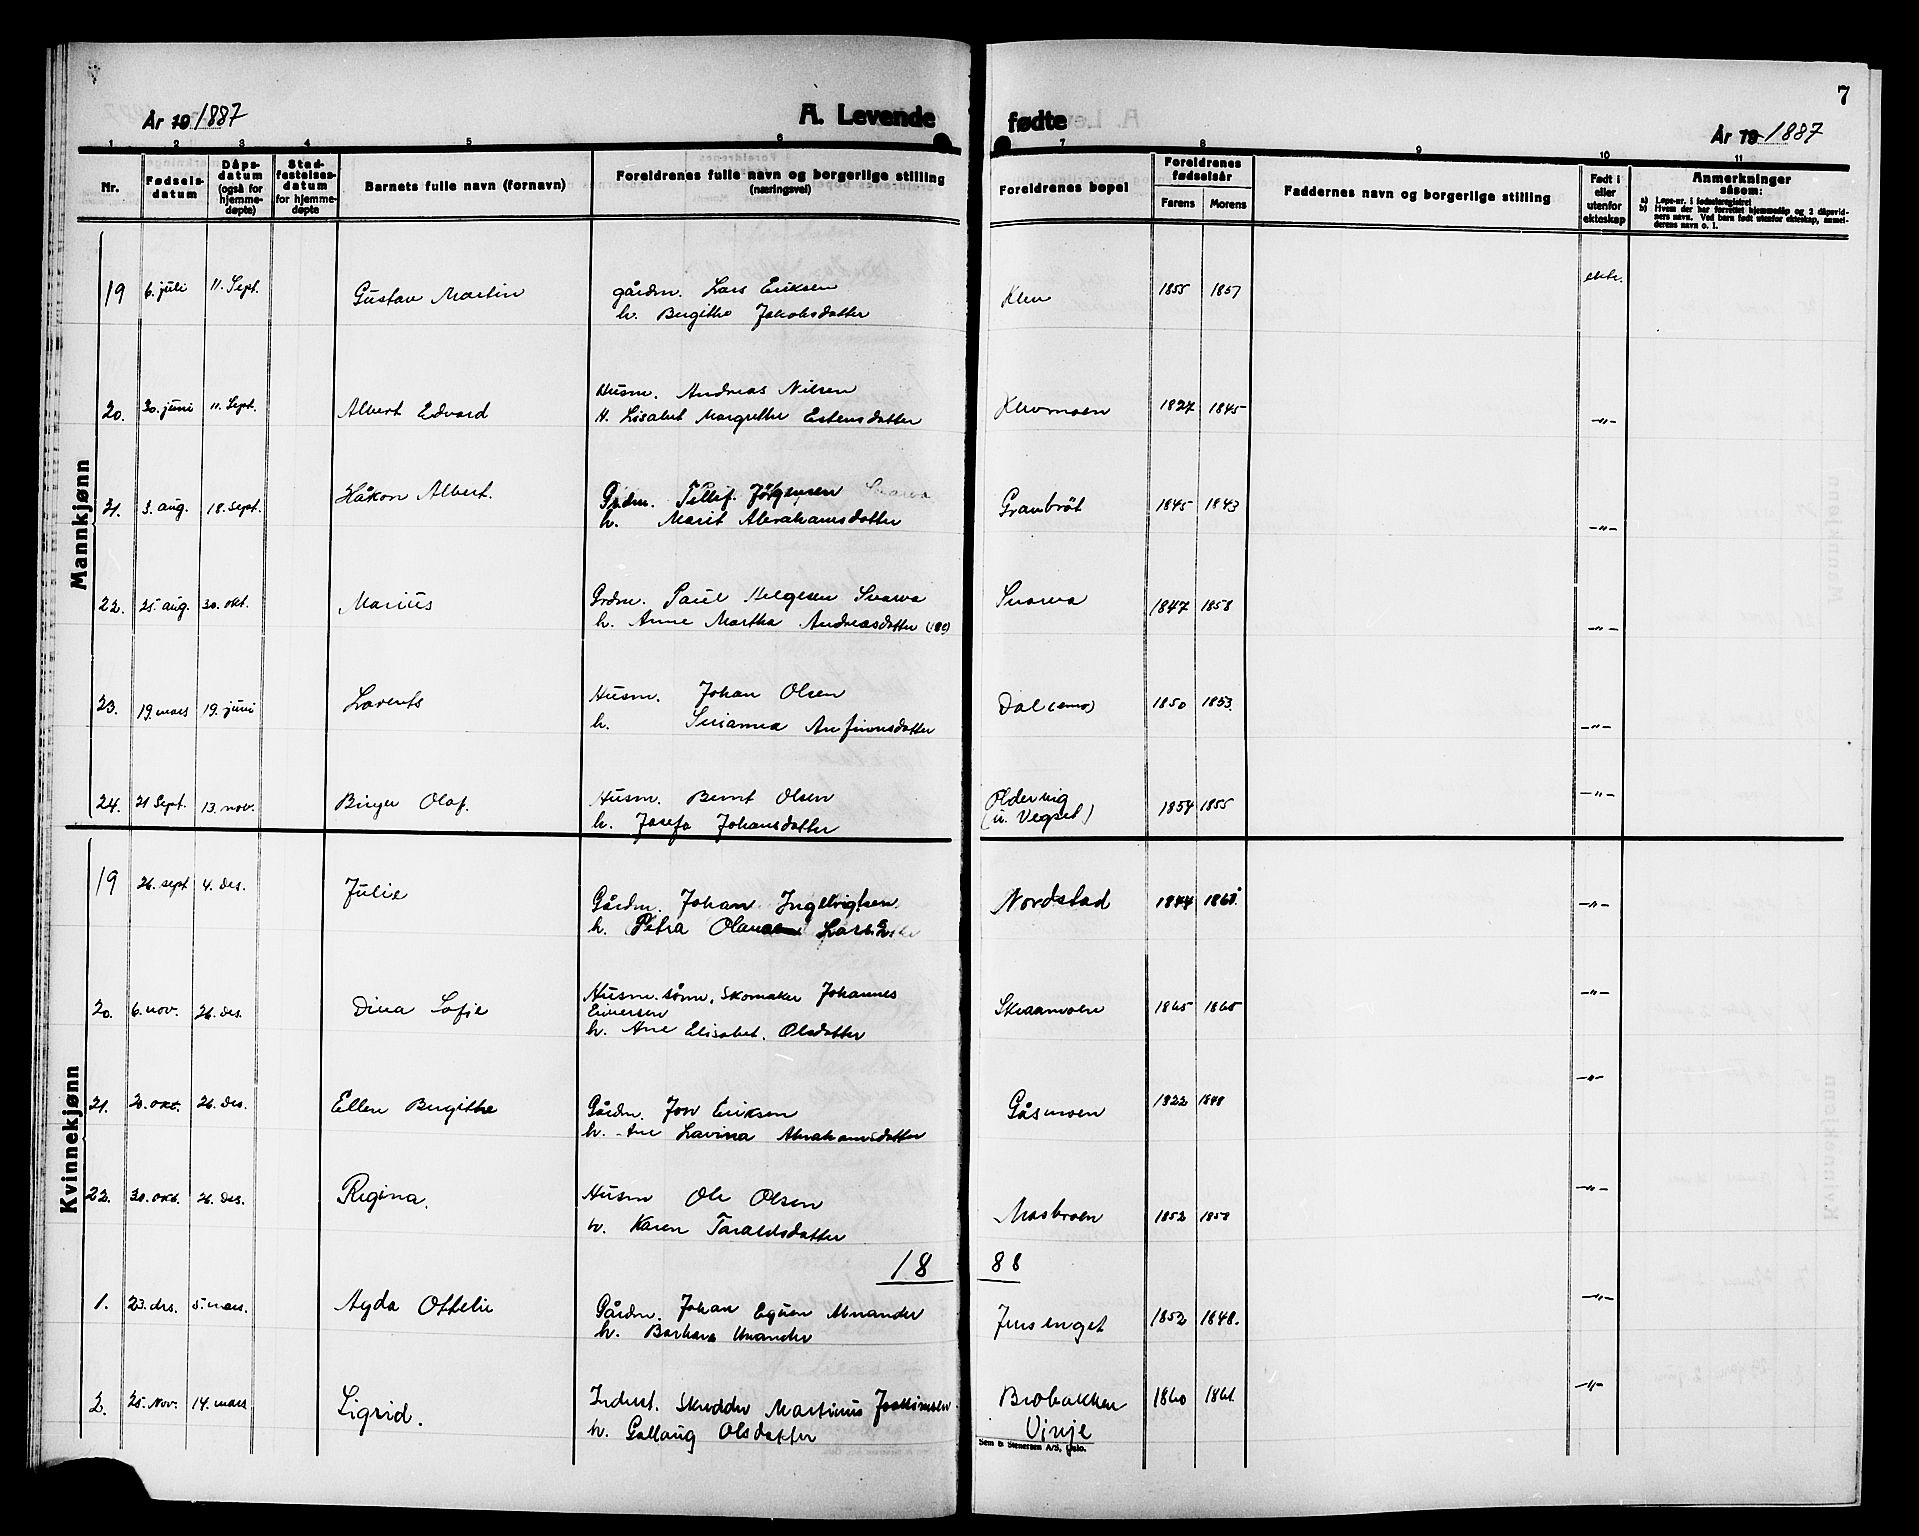 7
År 19 1887
A. Levende
fødte
År 19 1887
1 2 3 4 5 6 7 8 9 10 11
Nr.
Fødselsdatum
Dåpsdatum (også for hjemmedøpte)
Stadfestelsesdatum for hjemmedøpte
Barnets fulle navn (fornavn)
Foreldrenes fulle navn og borgerlige stilling (næringsvei)
Foreldrenes bopel
Foreldrenes fødselsår
Farens Morens
Faddernes navn og borgerlige stilling
Født i eller utenfor ekteskap
Anmerkninger såsom:
a) Løpe-nr. i fødselsregistret
b) Hvem der har forrettet hjemmedåp og 2 dåpsvidners navn. Ved barn født utenfor ekteskap, anmelderens navn o. l.
Mannkjønn
19 6. juli 11. Sept. Gustav Martin gårdm. Lars Eriksen Klev 1855 1857 ekte.
h. Birgithe Jakobsdatter
20. 30. juni 11. Sept. Albert Edvard Husm. Andreas Nilsen Klevmoen 1827 1845 -"-
H. Lisabet Margrethe Estensdatter
21. 3. aug. 18. sept. Håkon Albert. Grdm. Tellef Jörgensen Snarva Granbröt 1845 1843 -"-
h. Marit Abrahamsdatter
22. 25. aug. 30. okt. Marius Grdm. Paul Helgesen Snarva Snarva 1847 1858 -"-
h. Anne Martha Andreasdatter
23. 19. mars 19. juni Lorents Husm. Johan Olsen Dal 1850 1853. -"-
h. Susanna Anfinnsdatter
24. 21 Sept. 13. nov. Birger Olaf. Husm. Bernt Olsen Oldervig 1854 1855 -"-
h. Josefa Johansdatter (u. Vegset)
Kvinnekjønn
19 26. sept 4. des. Julie Gårdm. Johan Ingebrigtsen. Nordstad 1844 -"-
h. Petra Olana
20. 6. nov. 26. des. Dina Sofie Husm. sønn, Skomaker Johannes 1865 1865 -"-
Einersen
h. Ane Elisabet. Olsdatter
21. 20. okt. 26. des. Ellen Birgithe Gårdm. Jon Eriksen Gåsmoen 1822 1848 -"-
h. Ane Lavina Abrahamsdatter
22. 30. okt. 26. des. Regina. Husm Ole Olsen Mosbroen 1852 1858 -"-
h. Karen Taraldsdatter
18 88
1. 23. des. 5. mars. Agda Ottelie Gårdm. Johan Unander Jensenget 1852 1848. -"-
h. Barbara Unander
2. 25. Nov. 14. mars Sigrid. Inderst. Skredder Martinus Joakimsen. Brobakken 1860 1861. -"-
h. Gollaug Olsdatter Vinje
Sem & Stenersen A/S, Oslo.